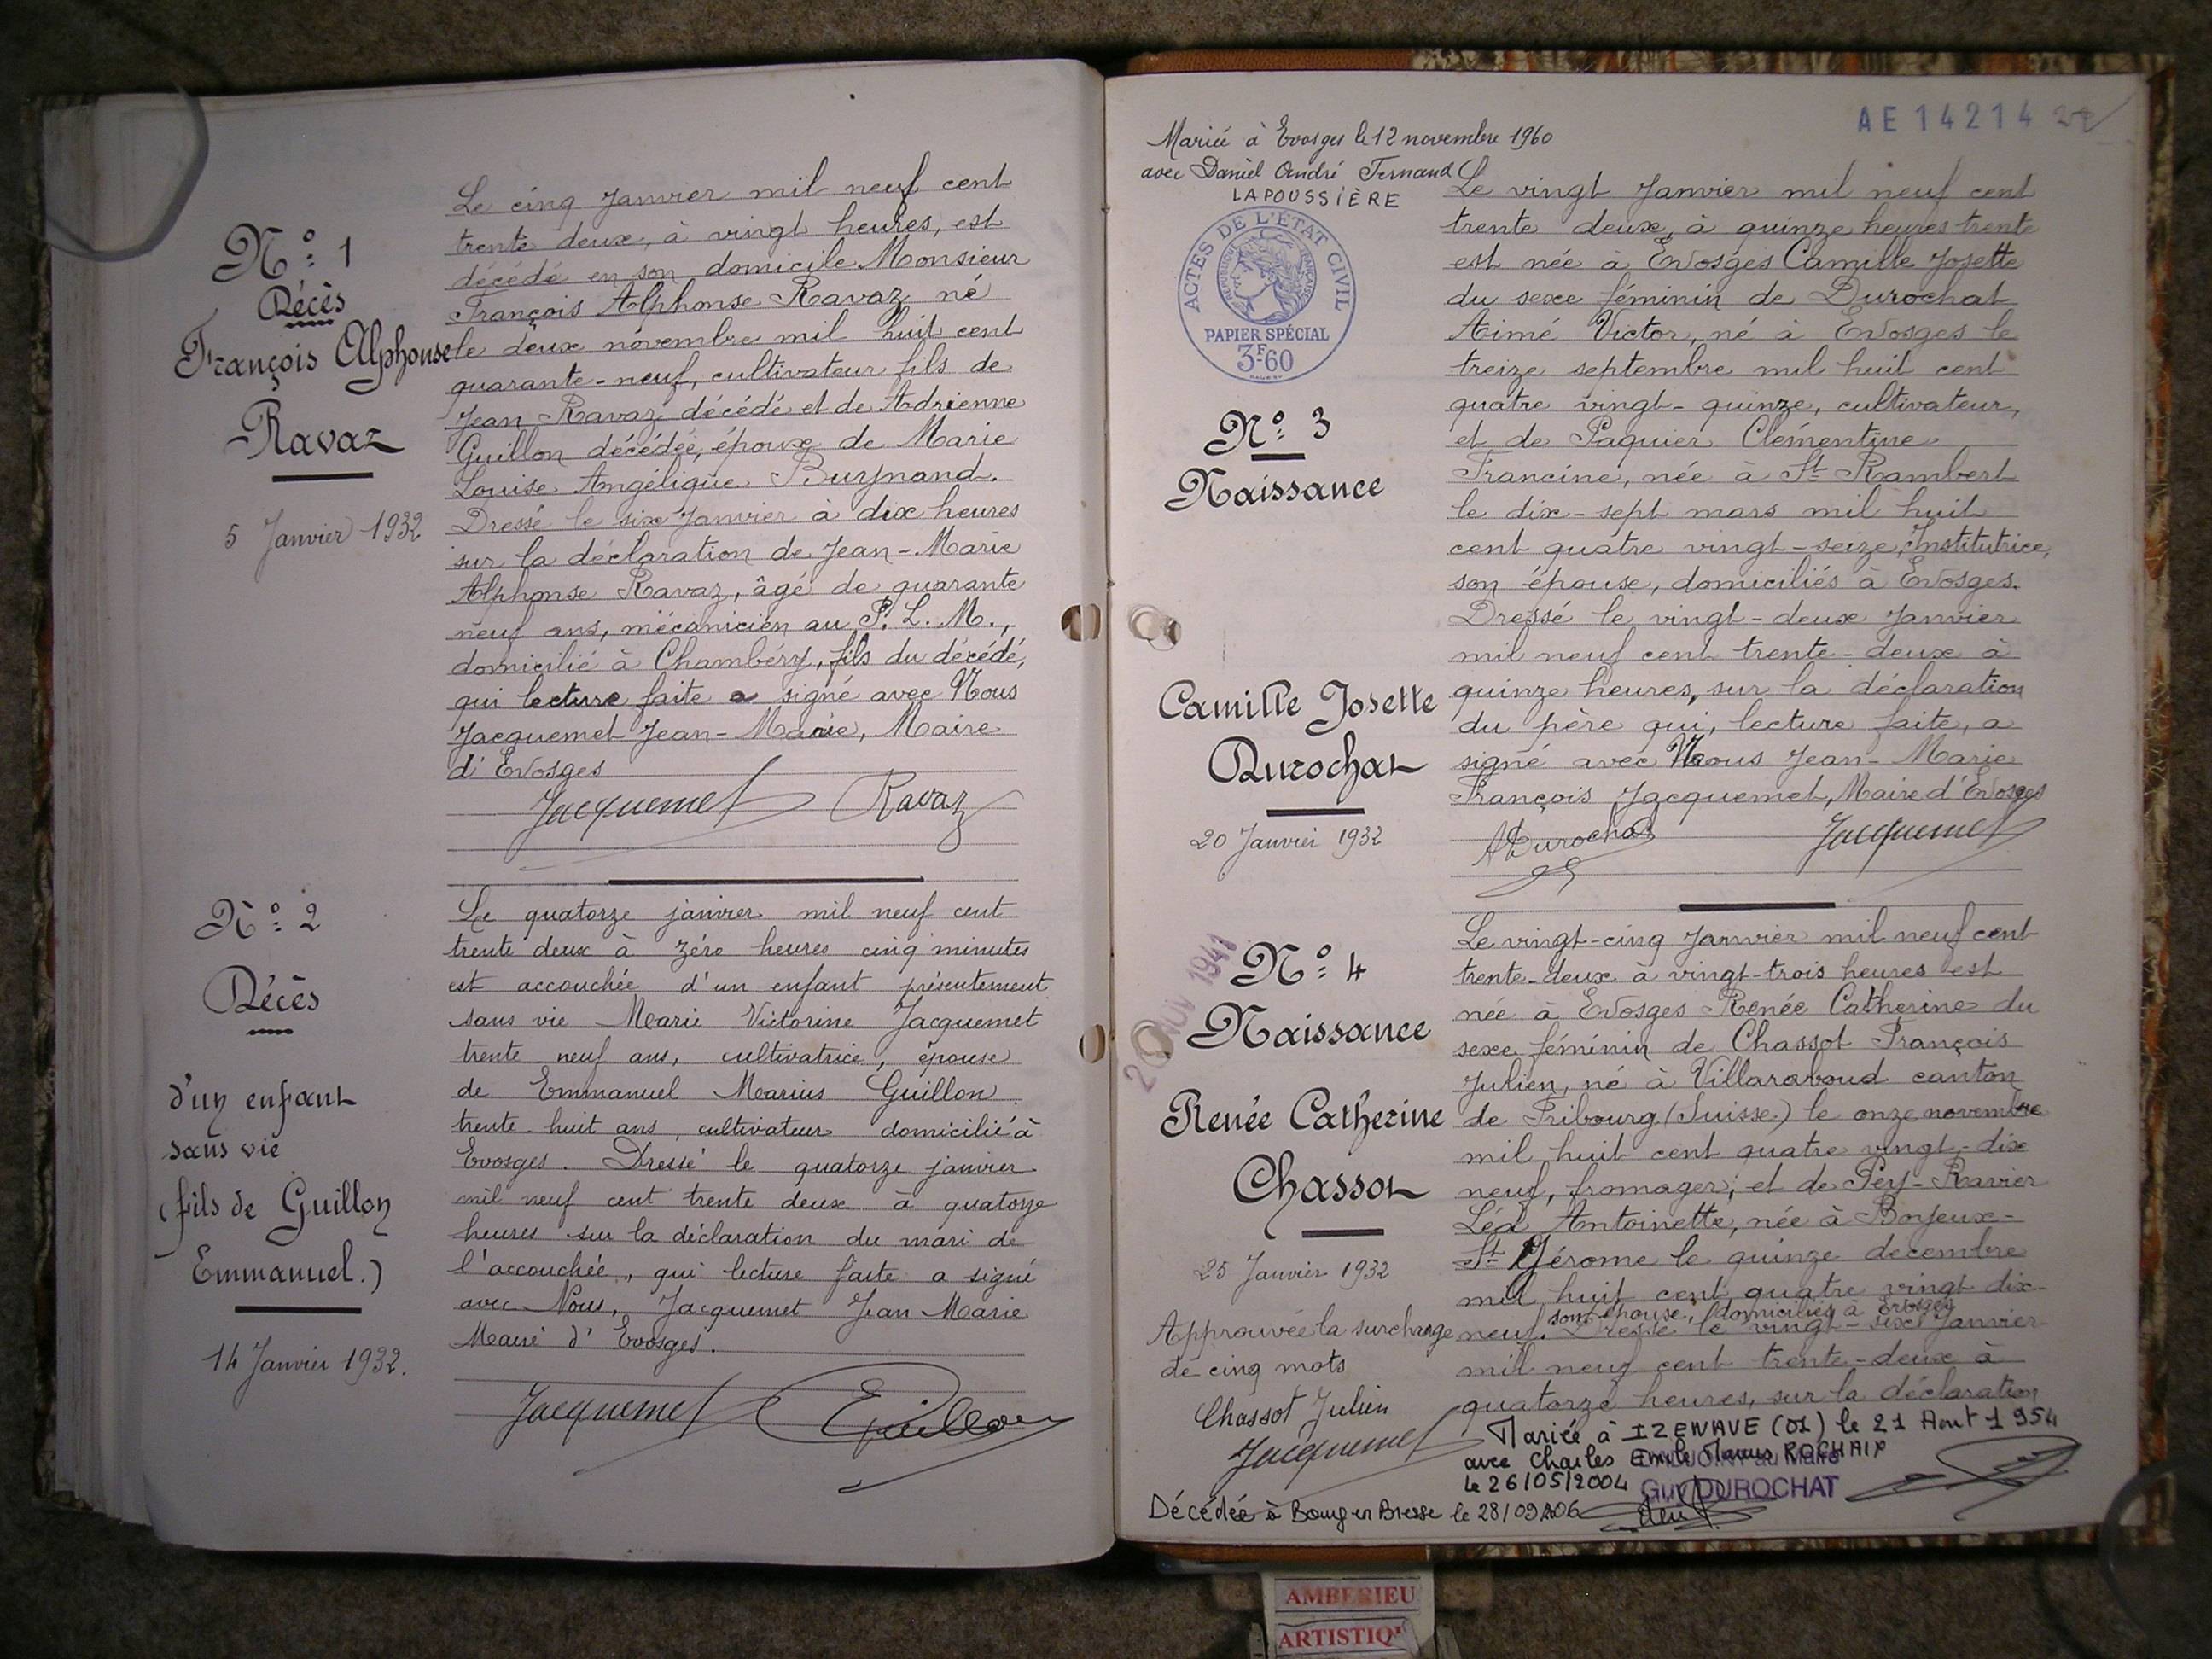 N° 1
Décès
François Alphonse
Ravaz
5 Janvier 1932
Le cinq Janvier mil neuf cent
trente deux, à vingt heures, est
décédé en son domicile Monsieur
François Alphonse Ravaz né
le deux novembre mil huit cent
quarante-neuf, cultivateur fils de
Jean Ravaz décédé et de Adrienne
Guillon décédée, époux de Marie
Louise Angélique Buynand.
Dressé le six Janvier à dix heures
sur la déclaration de Jean-Marie
Alphonse Ravaz, âgé de quarante
neuf ans, mécanicien au P. L. M.,
domicilié à Chambéry, fils du décédé,
qui lecture faite a signé avec Nous
Jacquemet Jean-Marie, Maire
d'Evosges
Jacquemet Ravaz
N° 2
Décès
d'un enfant
sans vie
(fils de Guillon
Emmanuel.)
14 Janvier 1932.
Le quatorze janvier mil neuf cent
trente deux à zéro heures cinq minutes
est accouchée d'un enfant présentement
sans vie Marie Victorine Jacquemet
trente neuf ans, cultivatrice, épouse
de Emmanuel Marius Guillon
trente-huit ans, cultivateur domicilié à
Evosges. Dressé le quatorze janvier
mil neuf cent trente deux à quatorze
heures sur la déclaration du mari de
l'accouchée, qui lecture faite a signé
avec Nous, Jacquemet Jean Marie
Maire d'Evosges.
Jacquemet Guillon
AE 14214
Mariée à Evosges le 12 novembre 1960
avec Daniel André Fernand
LAPOUSSIÈRE
ACTES DE L'ÉTAT CIVIL
RÉPUBLIQUE FRANÇAISE
PAPIER SPÉCIAL
3F60
N° 3
Naissance
Camille Josette
Durochat
20 Janvier 1932
Le vingt Janvier mil neuf cent
trente deux, à quinze heures trente
est née à Evosges Camille Josette
du sexe féminin de Durochat
Aimé Victor, né à Evosges le
treize septembre mil huit cent
quatre vingt-quinze, cultivateur,
et de Paquier Clémentine
Francine, née à St Rambert
le dix-sept mars mil huit
cent quatre vingt-seize, Institutrice,
son épouse, domiciliés à Evosges.
Dressé le vingt-deux Janvier
mil neuf cent trente-deux à
quinze heures, sur la déclaration
du père qui, lecture faite, a
signé avec Nous Jean-Marie
François Jacquemet, Maire d'Evosges
A Durochat Jacquemet
1941
N° 4
Naissance
Renée Catherine
Chassot
25 Janvier 1932
Approuvée la surcharge
de cinq mots
Chassot Julien
Jacquemet
Le vingt-cinq Janvier mil neuf cent
trente-deux à vingt-trois heures est
née à Evosges Renée Catherine du
sexe féminin de Chassot François
Julien, né à Villaraboud canton
de Fribourg (Suisse) le onze novembre
mil huit cent quatre vingt-dix
neuf, fromager; et de Pey-Ravier
Léa Antoinette, née à Boyeux-
St Jérome le quinze decembre
mil huit cent quatre vingt dix-
son épouse, domiciliés à Evosges
neuf. Dressé le vingt-six Janvier
mil neuf cent trente-deux à
quatorze heures, sur la déclaration
Mariée à IZENAVE (01) le 21 Aout 1954
avec Charles Emile Marius ROCHAIX
le 26/05/2004
Guy DUROCHAT
Décédée à Bourg en Bresse le 28/09/2006
AMBERIEU
ARTISTIQ